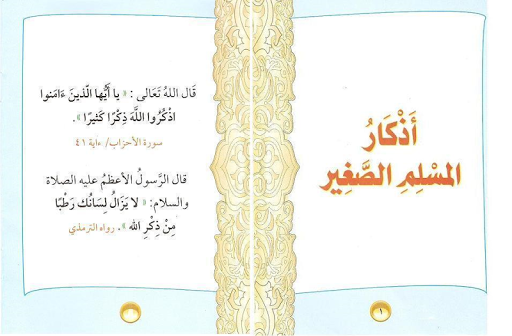 أَذْكَارُ
المُسْلِمِ الصَّغِيرِ
١
قَالَ اللهُ تَعَالَى : « يا أَيُّها الَّذينَ ءَامَنوا
اذْكُرُوا اللَّهَ ذِكْرًا كَثيرًا ».
سورة الأحزاب/ ءاية ٤١
قال الرَّسولُ الأعظمُ عليه الصلاة
والسلام: « لا يَزَالُ لِسَانُك رَطْبًا
مِنْ ذِكْرِ الله ». رواه الترمذي